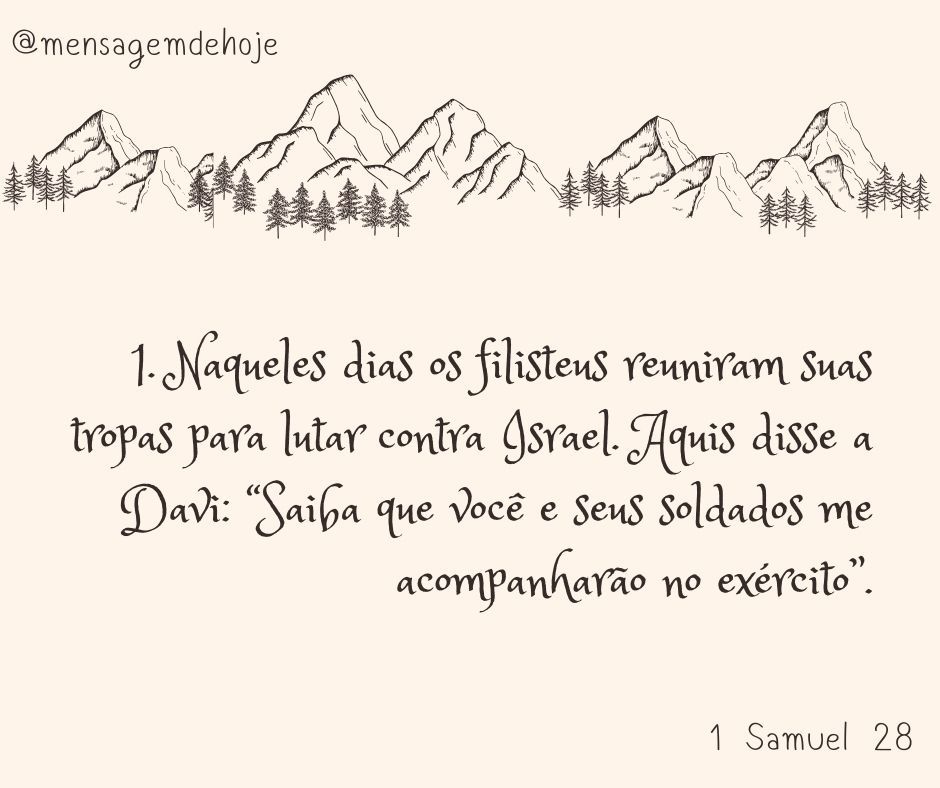 @mensagemdehoje
1. Naqueles dias os filisteus reuniram suas
tropas para lutar contra Israel. Aquis disse a
Davi: “Saiba que você e seus soldados me
acompanharão no exército”.
1 Samuel 28